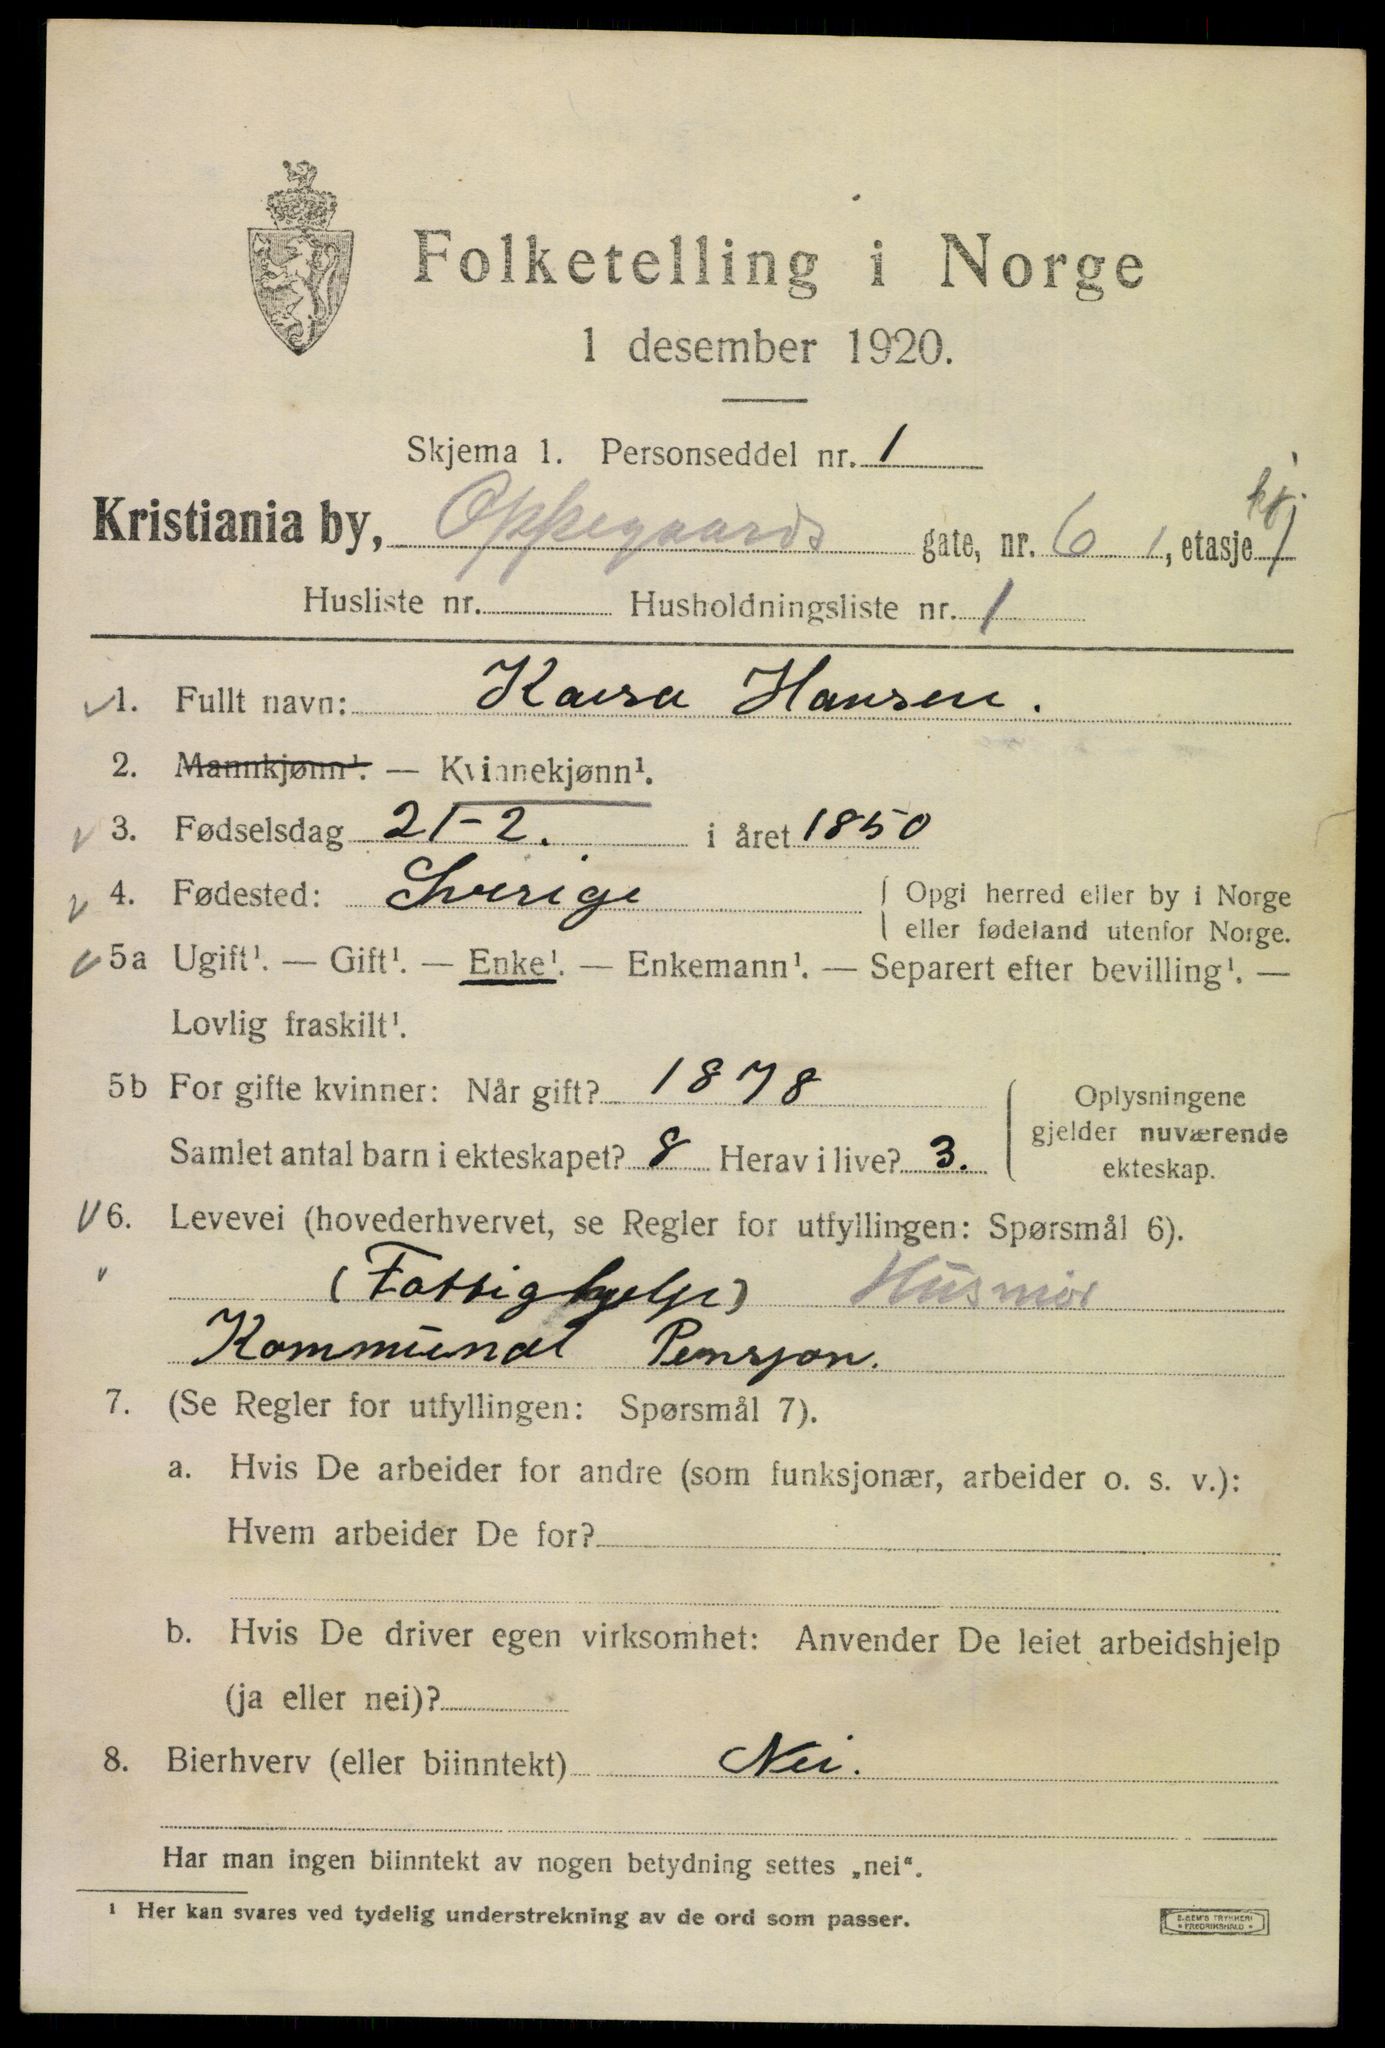 Folketelling i Norge
1 desember 1920.
Skjema 1. Personseddel nr. 1
Kristiania by, Oppegaards gate, nr. 6 1, etasje
Husliste nr. Husholdningsliste nr. 1
1. Fullt navn: Kaisa Hansen.
2. Mannkjønn¹. — Kvinnekjønn¹.
3. Fødselsdag 21-2. i året 1850
4. Fødested: Sverige { Opgi herred eller by i Norge
eller fødeland utenfor Norge.
5a Ugift¹. — Gift¹. — Enke¹. — Enkemann¹. — Separert efter bevilling¹. —
Lovlig fraskilt¹.
5b For gifte kvinner: Når gift? 1878
Samlet antal barn i ekteskapet? 8 Herav i live? 3.
Oplysningene
gjelder nuværende
ekteskap.
6. Levevei (hovederhvervet, se Regler for utfyllingen: Spørsmål 6).
(Fattighjelp) Husmor
Kommunal Pensjon.
7. (Se Regler for utfyllingen: Spørsmål 7).
a. Hvis De arbeider for andre (som funksjonær, arbeider o. s. v.):
Hvem arbeider De for?
b. Hvis De driver egen virksomhet: Anvender De leiet arbeidshjelp
(ja eller nei)?
8. Bierhverv (eller biinntekt) Nei.
Har man ingen biinntekt av nogen betydning settes „nei“.
¹ Her kan svares ved tydelig understrekning av de ord som passer.